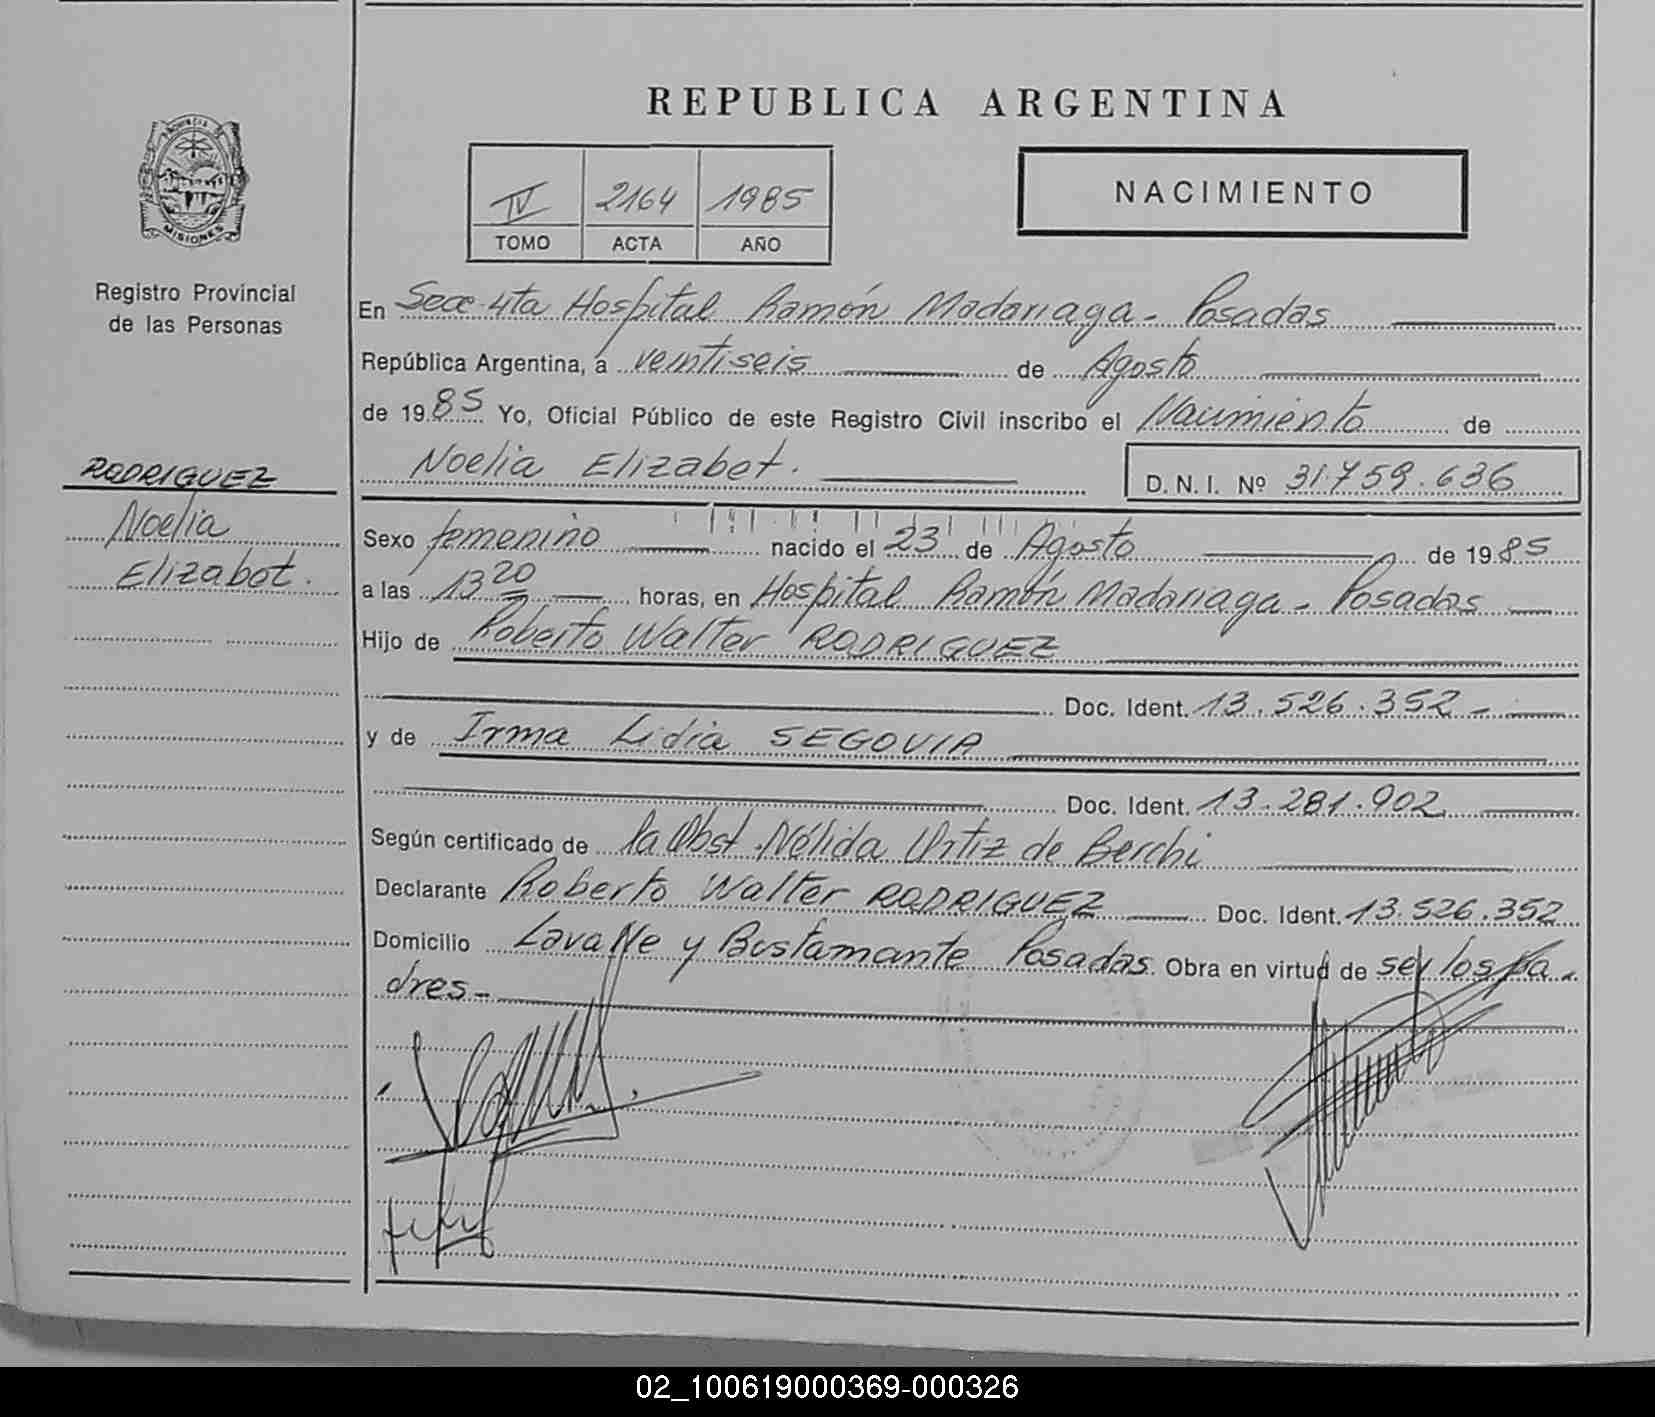 REPUBLICA ARGENTINA
PROVINCIA DE
MISIONES
IV 2164 1985
TOMO ACTA AÑO
NACIMIENTO
Registro Provincial
de las Personas
En Secc 4ta Hospital Ramón Madariaga - Posadas
República Argentina, a veintiseis de Agosto
de 1985 Yo, Oficial Público de este Registro Civil inscribo el Nacimiento de
Noelia Elizabet. D.N.I. Nº 31.759.636
RODRIGUEZ
Noelia
Elizabet.
Sexo femenino nacido el 23 de Agosto de 1985
a las 13 20 horas, en Hospital Ramón Madariaga - Posadas
Hijo de Roberto Walter RODRIGUEZ
Doc. Ident. 13.526.352 -
y de Irma Lidia SEGOVIA
Doc. Ident. 13.281.902
Según certificado de la Obst. Nélida Ortiz de Berchi
Declarante Roberto Walter RODRIGUEZ Doc. Ident. 13.526.352
Domicilio Lavalle y Bustamante Posadas. Obra en virtud de ser los pa-
dres -
02_100619000369-000326